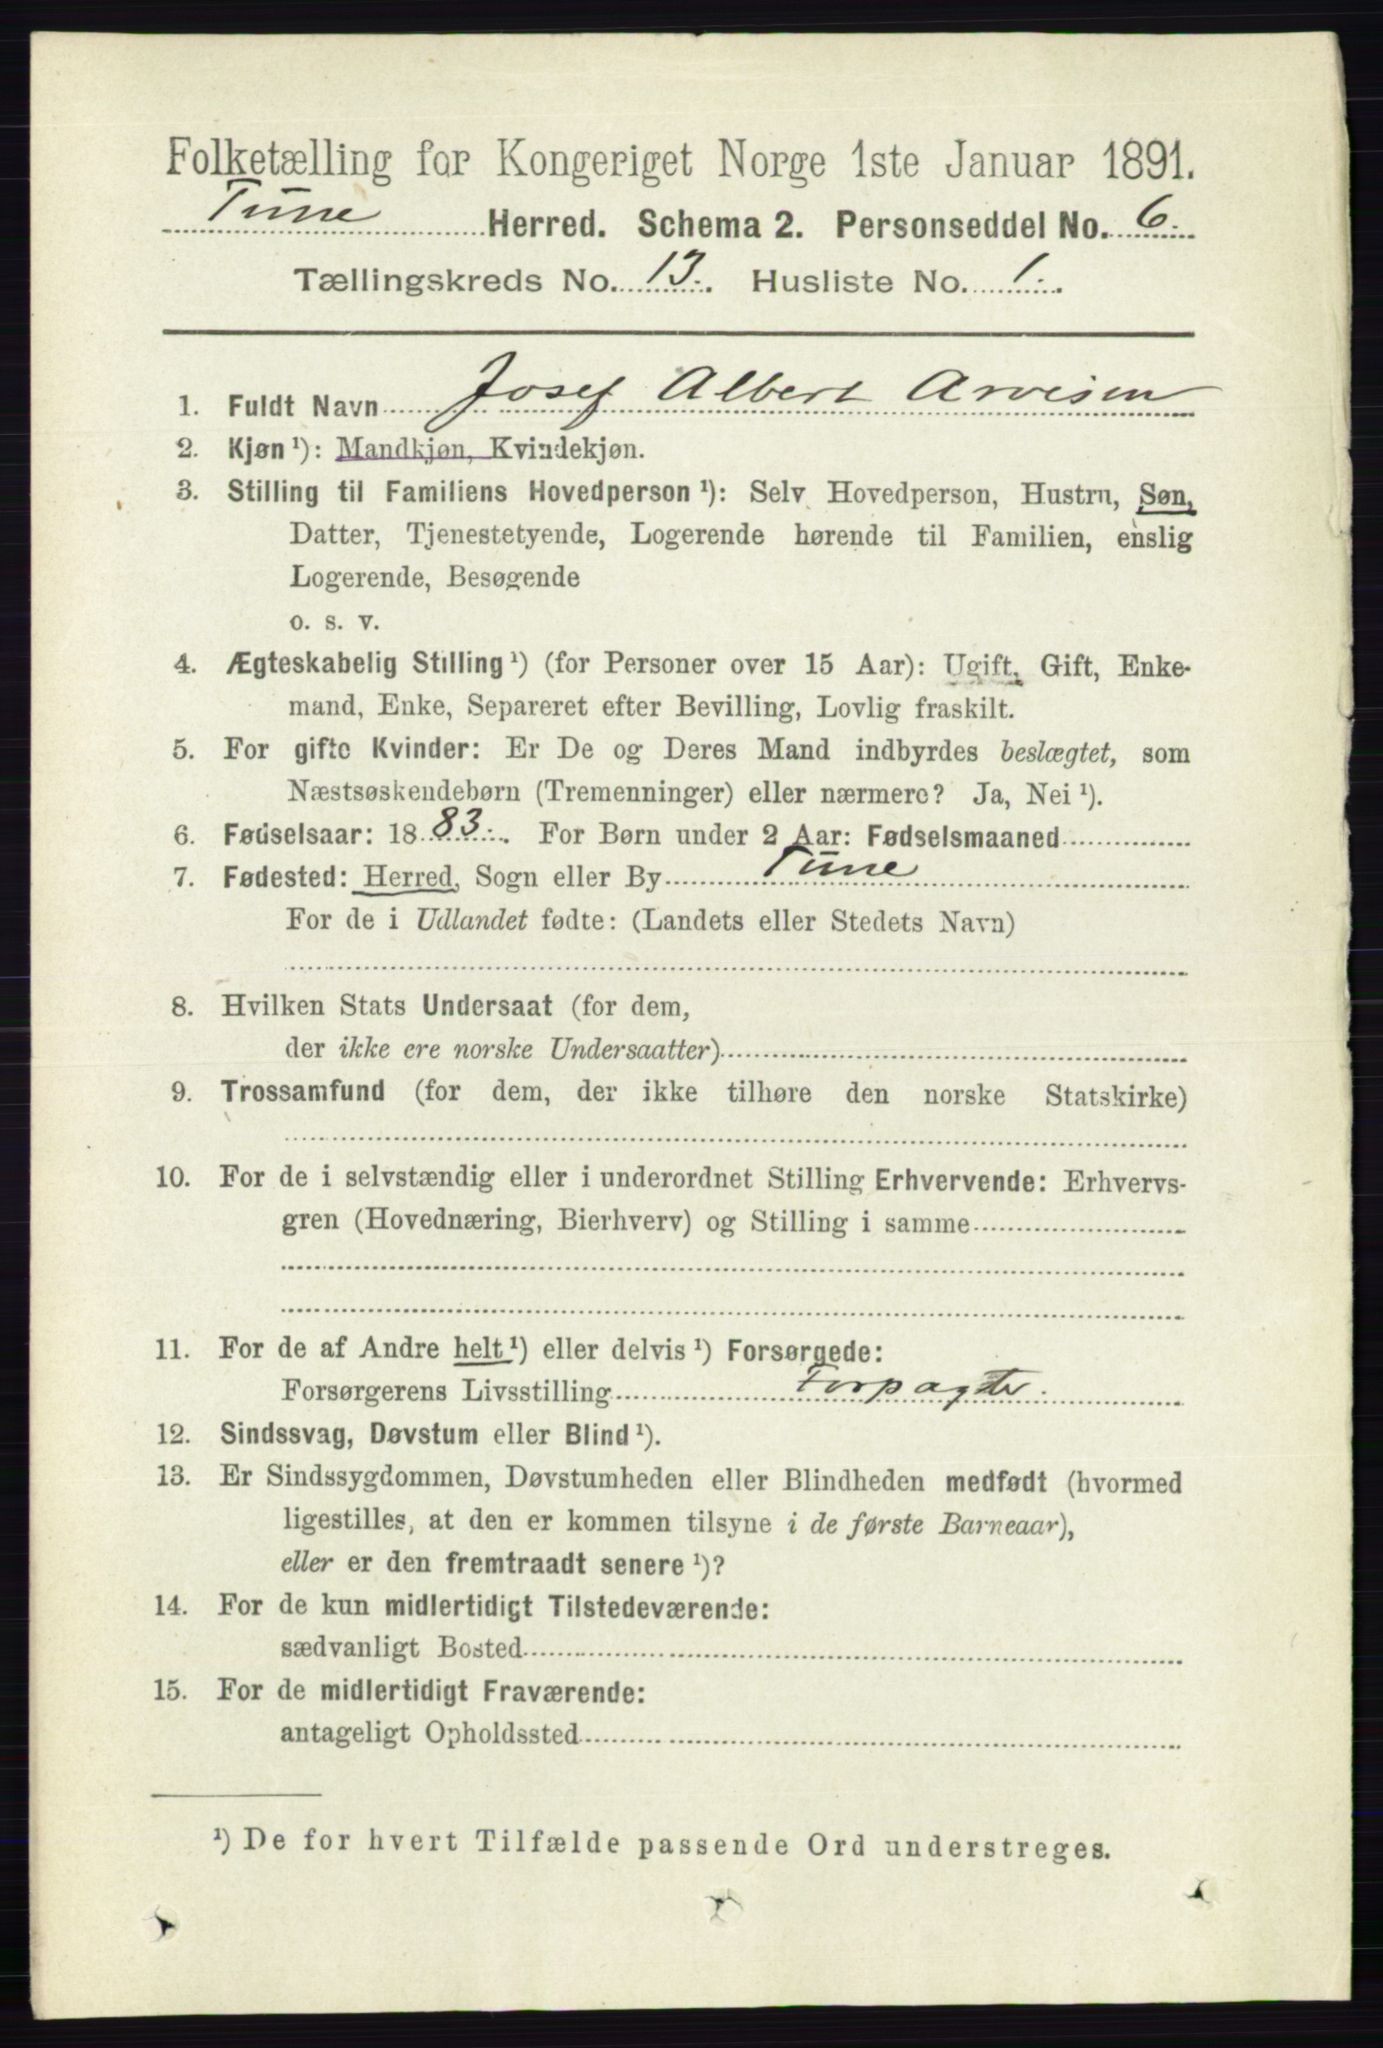 Folketælling for Kongeriget Norge 1ste Januar 1891.
Tune Herred. Schema 2. Personseddel No. 6.
Tællingskreds No. 13. Husliste No. 1.
1. Fuldt Navn Josef Albert Arvesen
2. Kjøn ¹): Mandkjøn, Kvindekjøn.
3. Stilling til Familiens Hovedperson ¹): Selv Hovedperson, Hustru, Søn,
Datter, Tjenestetyende, Logerende hørende til Familien, enslig
Logerende, Besøgende
o. s. v.
4. Ægteskabelig Stilling ¹) (for Personer over 15 Aar): Ugift, Gift, Enke-
mand, Enke, Separeret efter Bevilling, Lovlig fraskilt.
5. For gifte Kvinder: Er De og Deres Mand indbyrdes beslægtet, som
Næstsøskendebørn (Tremenninger) eller nærmere? Ja, Nei ¹).
6. Fødselsaar: 1883. For Børn under 2 Aar: Fødselsmaaned
7. Fødested: Herred, Sogn eller By Tune
For de i Udlandet fødte: (Landets eller Stedets Navn)
8. Hvilken Stats Undersaat (for dem,
der ikke ere norske Undersaatter)
9. Trossamfund (for dem, der ikke tilhøre den norske Statskirke)
10. For de i selvstændig eller i underordnet Stilling Erhvervende: Erhvervs-
gren (Hovednæring, Bierhverv) og Stilling i samme
11. For de af Andre helt ¹) eller delvis ¹) Forsørgede:
Forsørgerens Livsstilling Forpagter.
12. Sindssvag, Døvstum eller Blind ¹).
13. Er Sindssygdommen, Døvstumheden eller Blindheden medfødt (hvormed
ligestilles, at den er kommen tilsyne i de første Barneaar),
eller er den fremtraadt senere ¹)?
14. For de kun midlertidigt Tilstedeværende:
sædvanligt Bosted
15. For de midlertidigt Fraværende:
antageligt Opholdssted
¹) De for hvert Tilfælde passende Ord understreges.